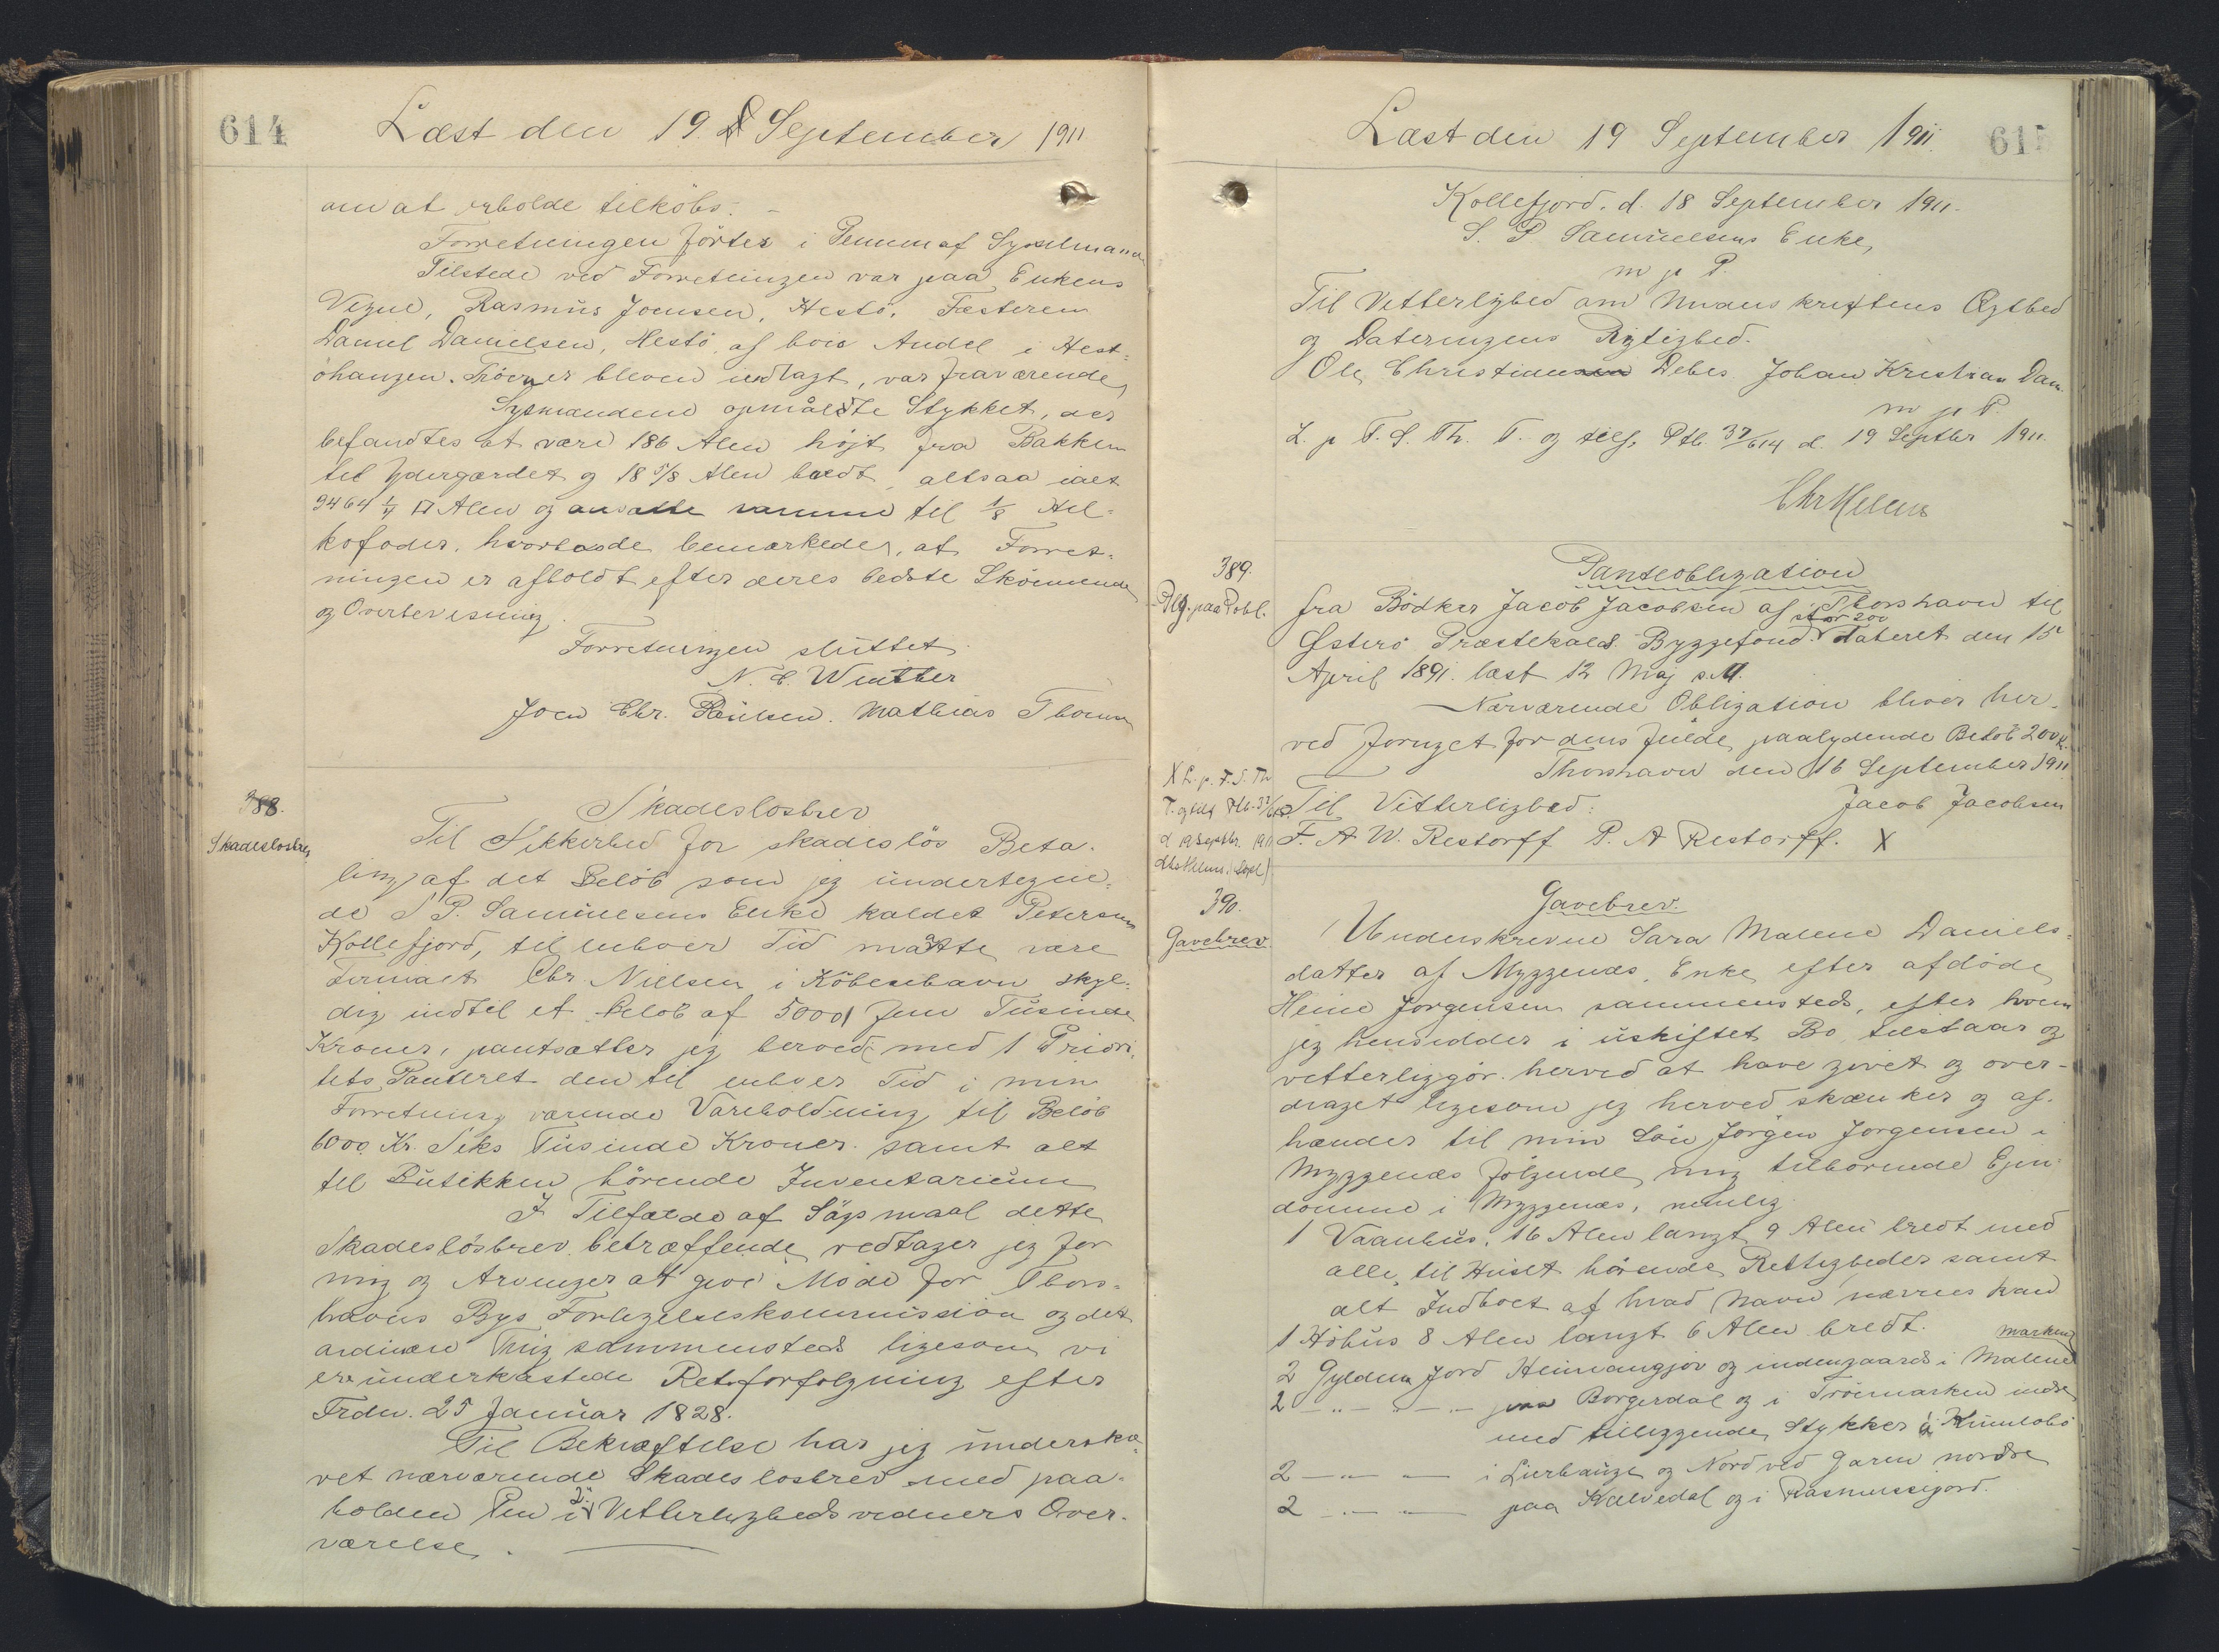 614
Læst den 19. September 1911
om at erholde tilkøbs. -
Forretningen førtes i Pennen af Sysselmand
Tilstede ved Forretningen var paa Enkens
Vegne, Rasmus Joensen, Hestø. Fæsteren
Daniel Danielsen, Hestø, af hvis Andel i Hest-
øhaugen. Tröen er bleven indtagt, var fraværende
Synsmændene opmålte Stykket, der
befandtes at være 186 Alen højt fra Bakken
til Ydergærdet og 18 5/8 Alen bredt, altsaa ialt
3464 1/4 □ Alen og ansatte samme til 1/8
kofoder, hvorhos de bemærkede, at Forret-
ningen er afholdt efter deres bedste Skönnende
og Overbevisning.
Forretningen sluttet
N. E. Winther
Joen Chr. Paulsen. Mathias Thomsen
388.
Skadesløsbrev
Skadesløsbrev
Til Sikkerhed for skadesløs Beta-
ling af det Beløb som jeg undertegne-
de S P. Samuelsens Enke kaldet Petersen
Kollefjord, til enhver Tid måtte være
Firmaet Chr. Nielsen i København skyl-
dig indtil et Beløb af 5000 Fem Tusinde
Kroner, pantsætter jeg herved med 1 Priori-
tets Panteret den til enhver Tid i min
Forretning værende Varebeholdning til Beløb
6000 Kr. Seks Tusinde Kroner samt alt
til Butikken hørende Inventarium
I Tilfælde af Søgsmaal dette
Skadesløsbrev betræffende vedtager jeg for
mig og Arvinger at give Møde for Thors-
havns Bys Forligelseskommission og det
ordinære Ting sammensteds ligesom vi
er underkastede Retsforfølgning efter
Frdn. 25 Januar 1828.
Til Bekræftelse har jeg underskre-
vet nærværende Skadesløsbrev med paa-
holden Pen i 2 Vetterlighedsvidners Over-
værelse.
Læst den 19 September 1911.
615
Kollefjord. d. 18 September 1911.
S. P Samuelsens Enke,
m p P.
Til Vetterlighed om Underskriftens Ægthed
og Dateringens Rigtighed.
Ole Christian Debes Johan Kristian Dam
m p P.
L. p F. S. Th. T. og tilf. Ptb. 37/614 d. 19 Septbr 1911.
Chr Helms
389.
Qtg. paa Pobl.
Panteobligation
fra Bödker Jacob Jacobsen af Thorshavn til
Østerö Præstekalds Byggefond stor 200 dateret den 15
April 1891. læst 12 Maj s. A.
Nærværende Obligation bliver her-
ved fornyet for dens fulde paalydende Beløb 200 Kr.
Thorshavn den 16 September 1911
Til Vitterlighed: Jacob Jacobsen
F. A W. Restorff P. A Restorff. X
X L. p. F. S. Th
T. og tilf Ptb.
d 19 Septbr. 1911
Chr Helms.
390.
Gavebrev
Gavebrev.
Underskrevne Sara Malene Daniels-
datter af Myggenæs, Enke efter afdøde
Heine Jørgensen sammensteds, efter hvem
jeg hensidder i uskiftet Bo, tilstaar og
vetterliggør herved at have givet og over-
draget ligesom jeg herved skænker og af-
hænder til min Søn Jørgen Jørgensen i
Myggenæs følgende mig tilhørende Ejen-
domme i Myggenæs, nemlig
1 Vaanhus, 16 Alen langt 9 Alen bredt med
alle til Huset hørende Rettigheder samt
alt Indboet af hvad Navn nævnes kan
1 Höhus 8 Alen langt 6 Alen bredt.
2 Gylden Jord Heimangjøv og indengaards i Malene marken
2 - " - " - paa Borgerdal og i Tröemarken nedre
med tilliggende Stykker
2 - " - i Lierhauge og Nord ved Garen nordre
2 - " - paa Kalvedal og i Rasmussigjord.